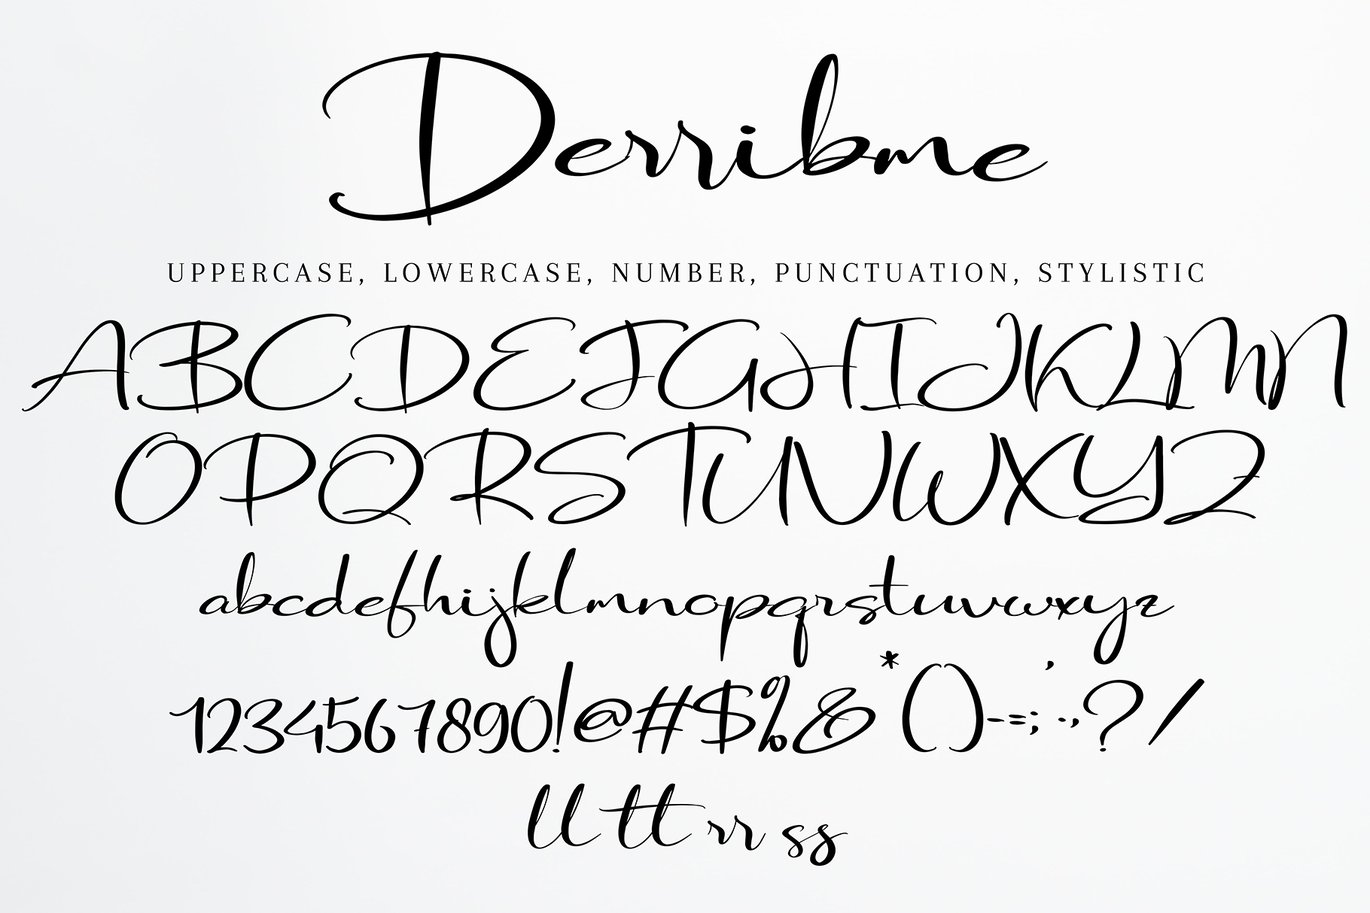 Derribme
UPPERCASE, LOWERCASE, NUMBER, PUNCTUATION, STYLISTIC
ABCDEFGHIJKLMN
OPQRSTUVWXYZ
abcdefhijklmnopqrstuvwxyz
1234567890!@#$%&*()-=;'.,?/
ll tt rr ss